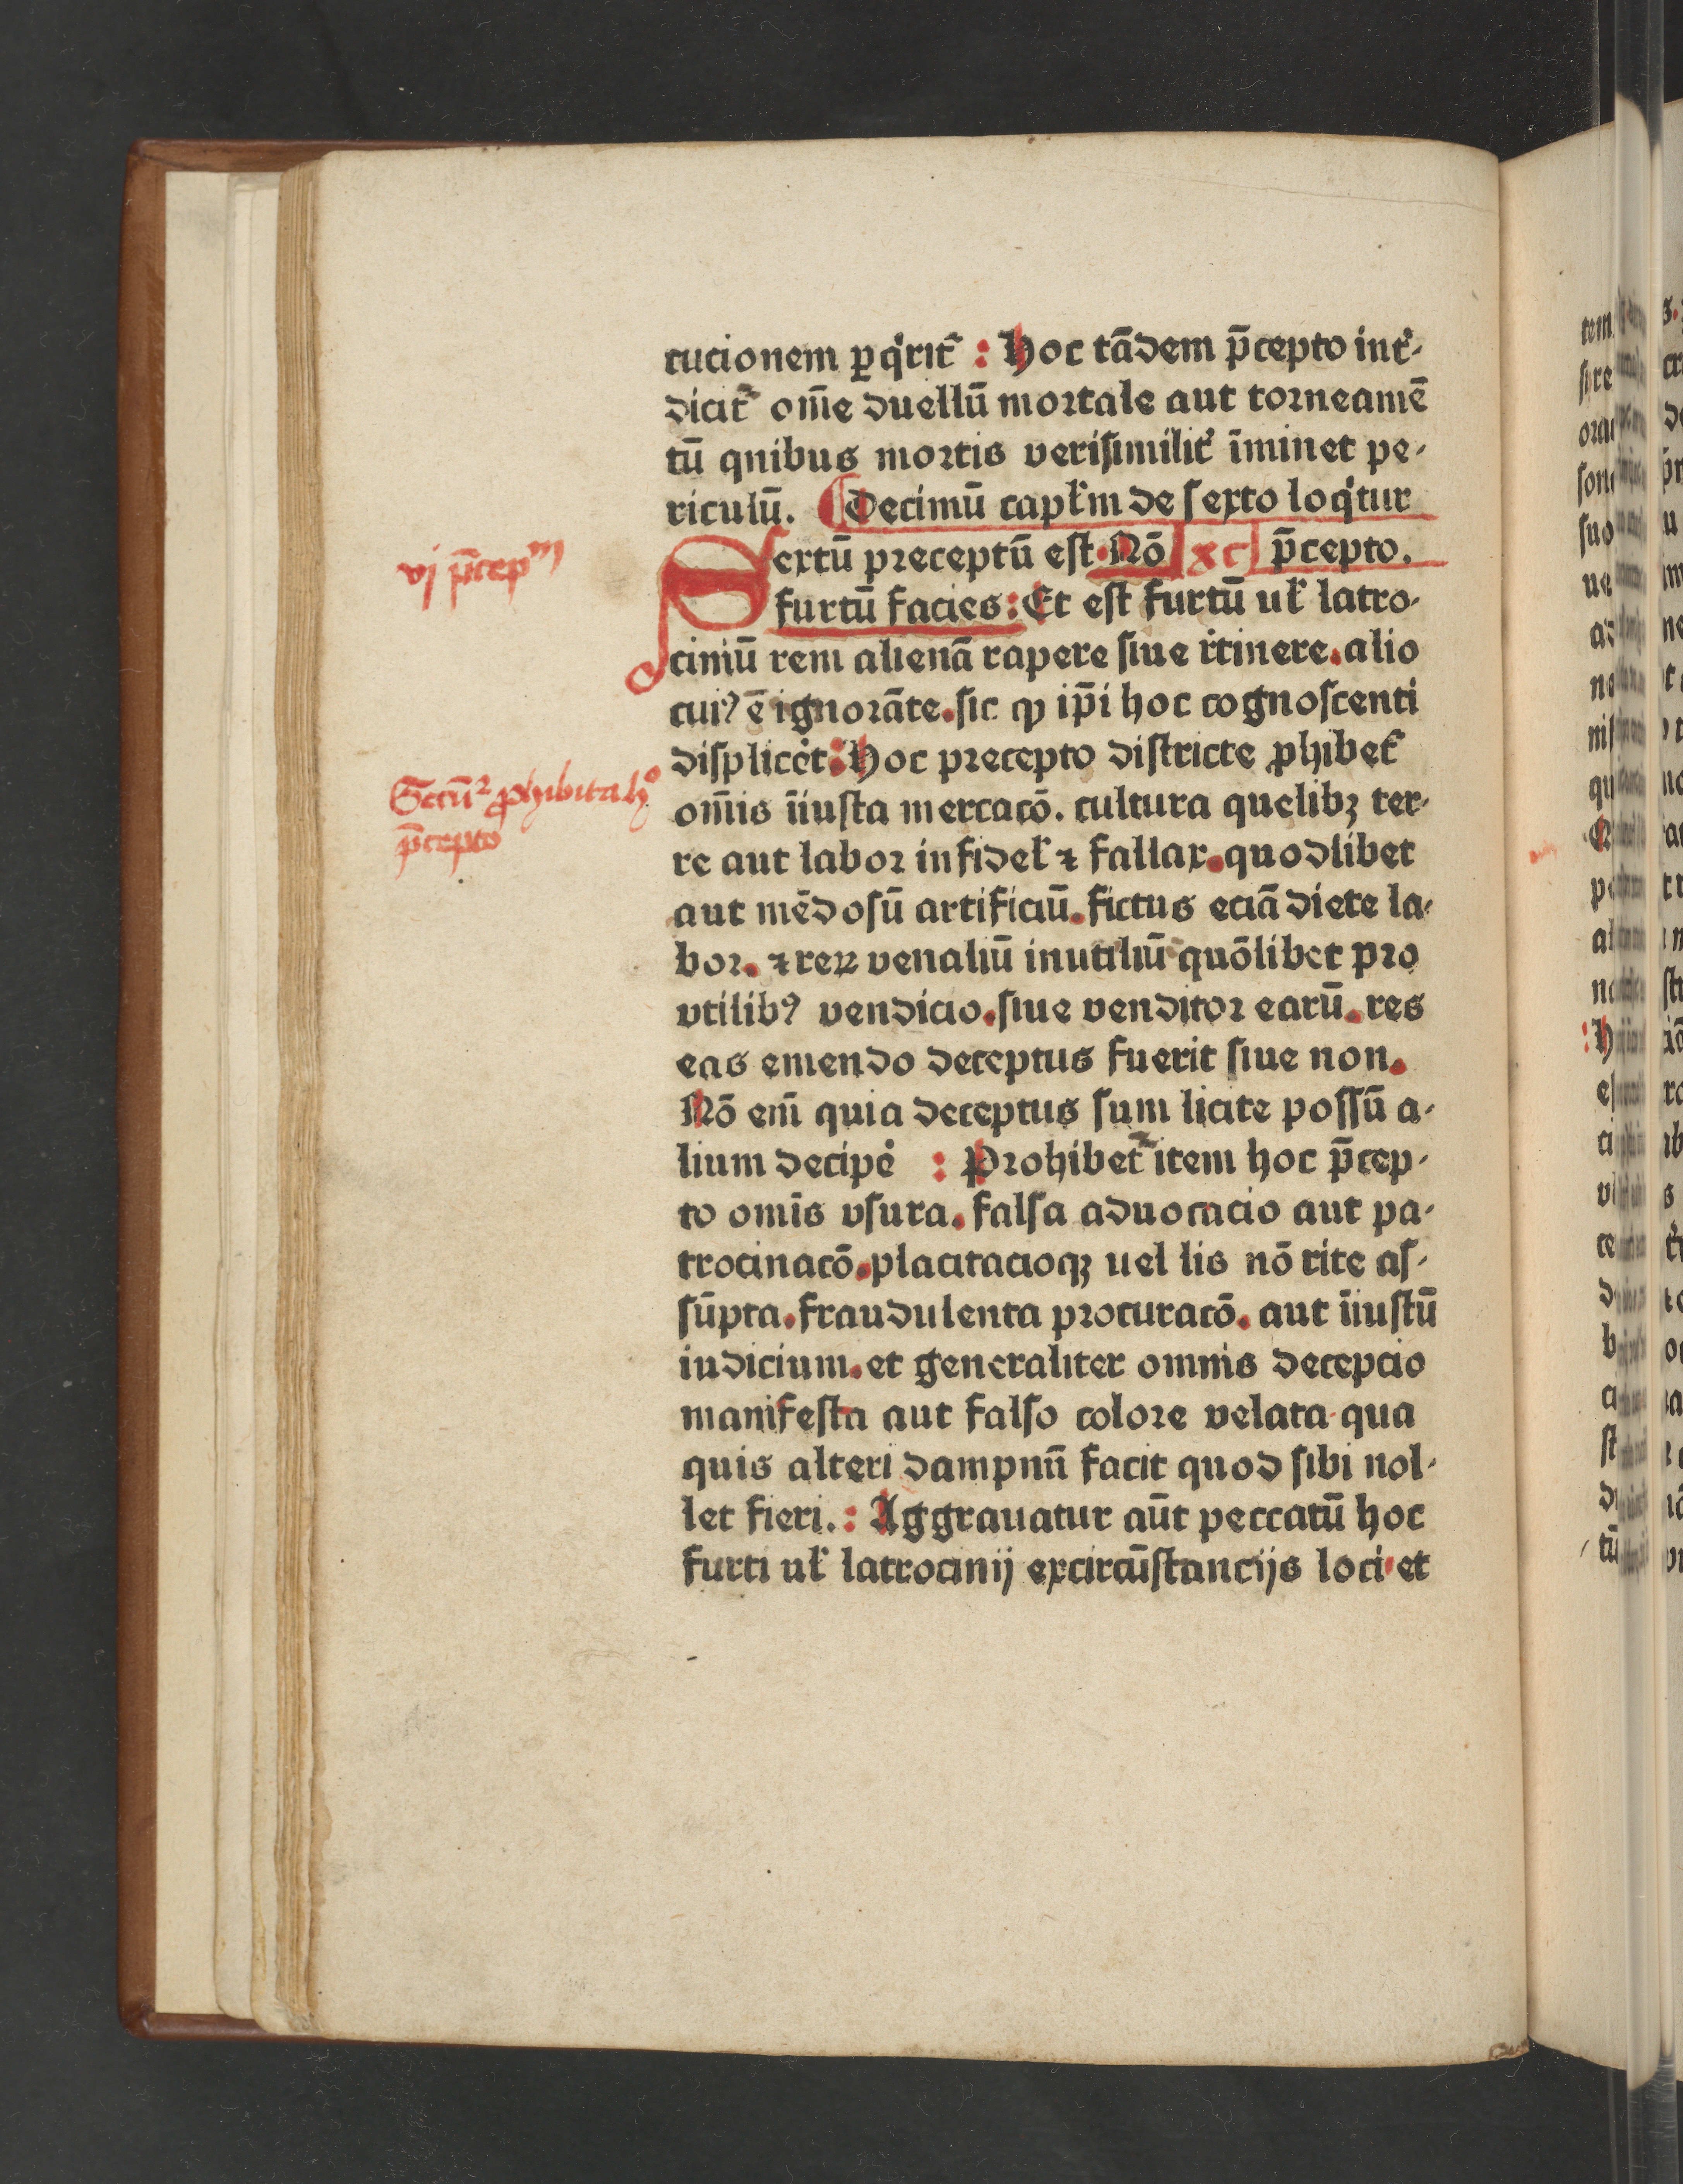 cucionem ꝑq̇rit᷑ : Hoc tādem p̄cepto int᷑⸗
dicit᷑ om̄e duellū mortale aut torneamē
tū qnibus mortis verisimilit᷑ īminet pe⸗
riculū. Decimū capl̄m de sexto loq̇tur
Sextū preceptū est. Nō xc p̄cepto.
furtū facies: Et est furtū ul̄ latro⸗
ciniū rem alienā rapere siue itinere. alio
cuiꝰ ē ignorāte. sic ꝙ ip̄i hoc cognoscenti
displicet: Hoc precepto districte ꝓhibet᷑
om̄is īiusta mercacō. cultura quelibꝫ ter⸗
re aut labor infidel̄ ⁊ fallax. quodlibet
aut mēdosū artificiū. fictus eciā diete la⸗
bor. ⁊ reꝝ venaliū inutiliū quōlibet pro
vtilibꝰ vendicio. siue venditor earū. res
eas emendo deceptus fuerit siue non.
Nō em̄ quia deceptus sum licite possū a⸗
lium decipe᷑ : Prohibet᷑ item hoc p̄cep⸗
to omīs vsura. falsa aduocacio aut pa⸗
trocinacō. placitacioqꝫ uel lis nō rite as⸗
sūpta. fraudulenta procuracō. aut īiustū
iudicium. et generaliter omnis decepcio
manifesta aut falso colore velata qua
quis alteri dampnū facit quod sibi nol⸗
let fieri. : Aggrauatur aūt peccatū hoc
furti ul̄ latrocinij excircūstancijs loci et
vj p̄cepᵐ
ꝓhibita hº
p̄cepto